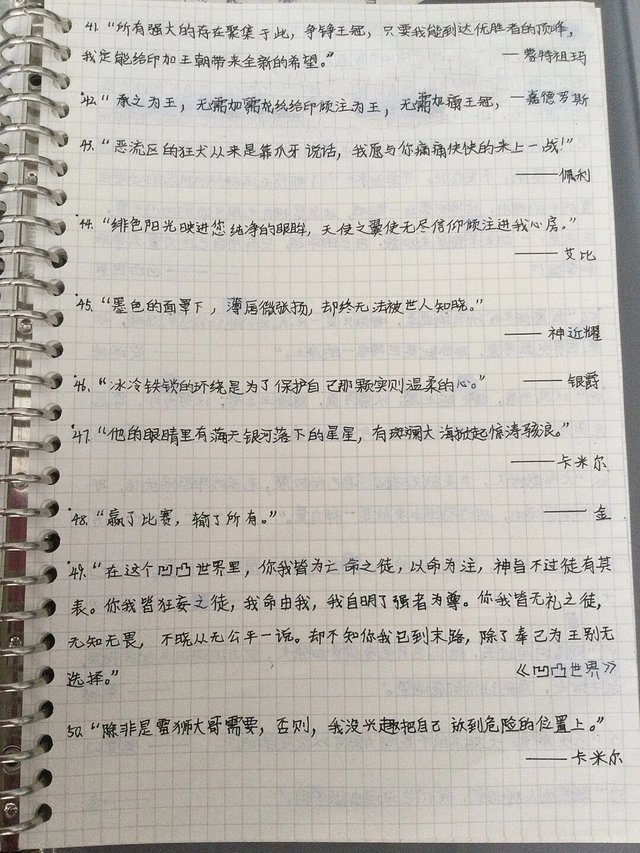 41. “所有强大的存在聚集于此，争铮王冠，只要我能到达优胜者的顶峰，
我定能给印加王朝带来全新的希望。”
——蒙特祖玛
42. “承之为王，无需加冕龙纹给印倾注为王，无需加冕王冠，——嘉德罗斯
43. “恶流区的狂犬从来是靠爪牙说话，我愿与你痛痛快快的来上一战！”
——佩利
44. “绯色阳光映进您纯净的眼眸，天使之翼使无尽信仰倾注进我心房。”
——艾比
45. “墨色的面罩下，薄唇微张扬，却终无法被世人知晓。”
——神近耀
46. “冰冷铁锁的环绕是为了保护自己那颗实则温柔的心。” ——银爵
47. “他的眼睛里有满天银河落下的星星，有斑斓大海掀起惊涛骇浪。”
——卡米尔
48. “赢了比赛，输了所有。” ——金
49. “在这个凹凸世界里，你我皆为亡命之徒，以命为注，神旨不过徒有其
表。你我皆狂妄之徒，我命由我，我自明了强者为尊。你我皆无礼之徒，
无知无畏，不晓从无公平一说。却不知你我已到末路，除了奉己为王别无
选择。” 《凹凸世界》
50. “除非是雷狮大哥需要，否则，我没兴趣把自己放到危险的位置上。”
——卡米尔